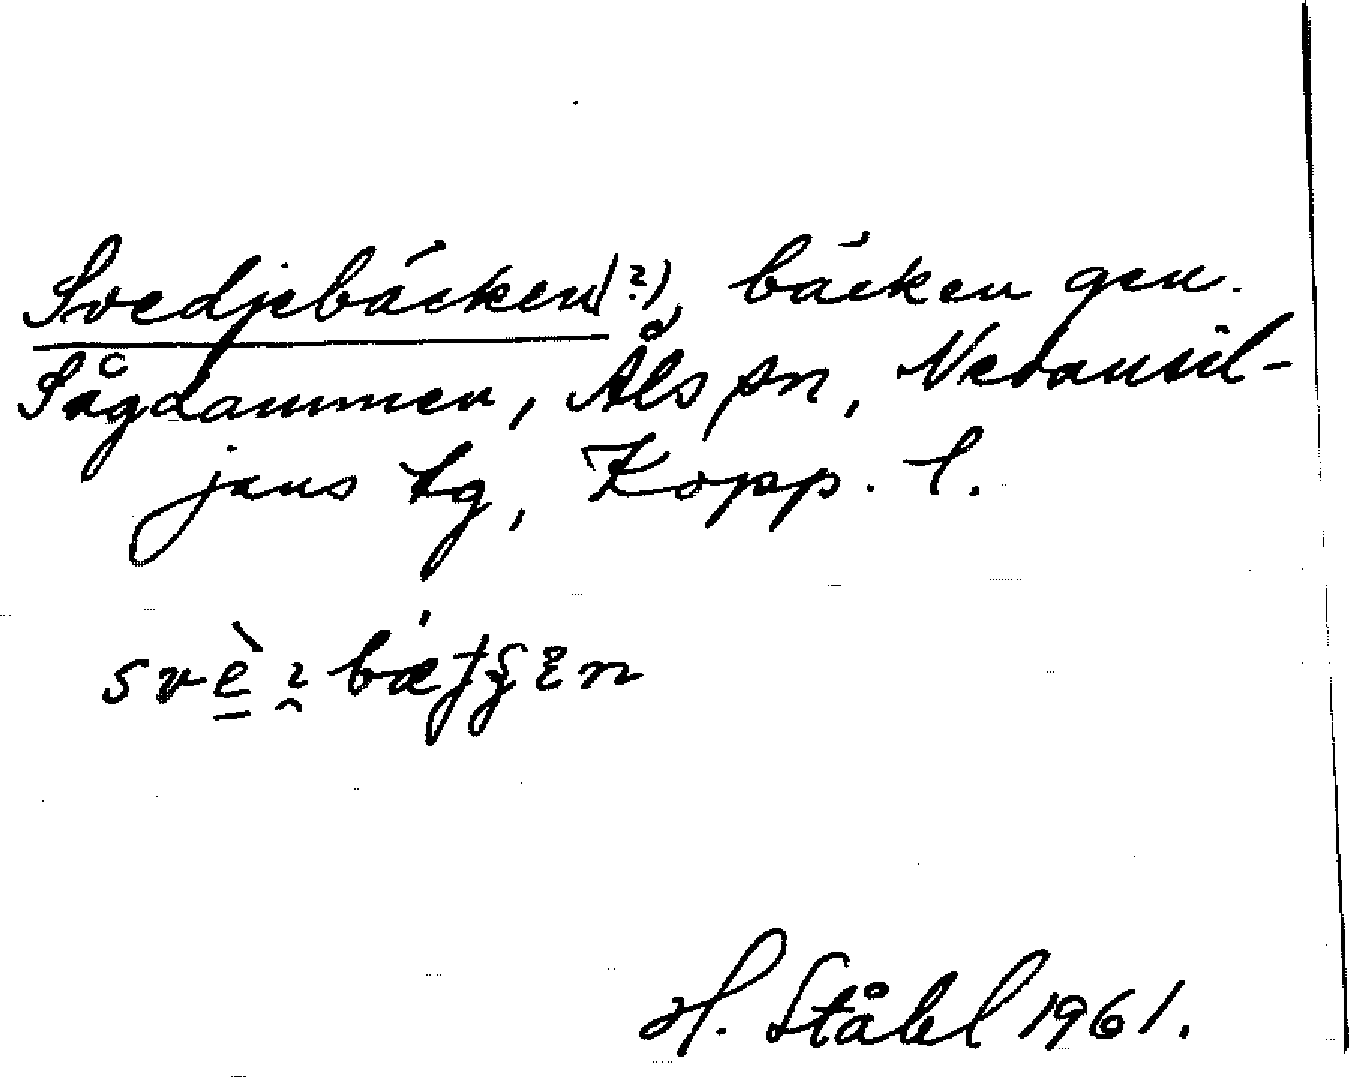 Svedjebäcken(?), bäcken gen.
Sågdammen, Åls sn, Nedansil-
jans tg, Kopp. l.
H. Ståhl 1961.